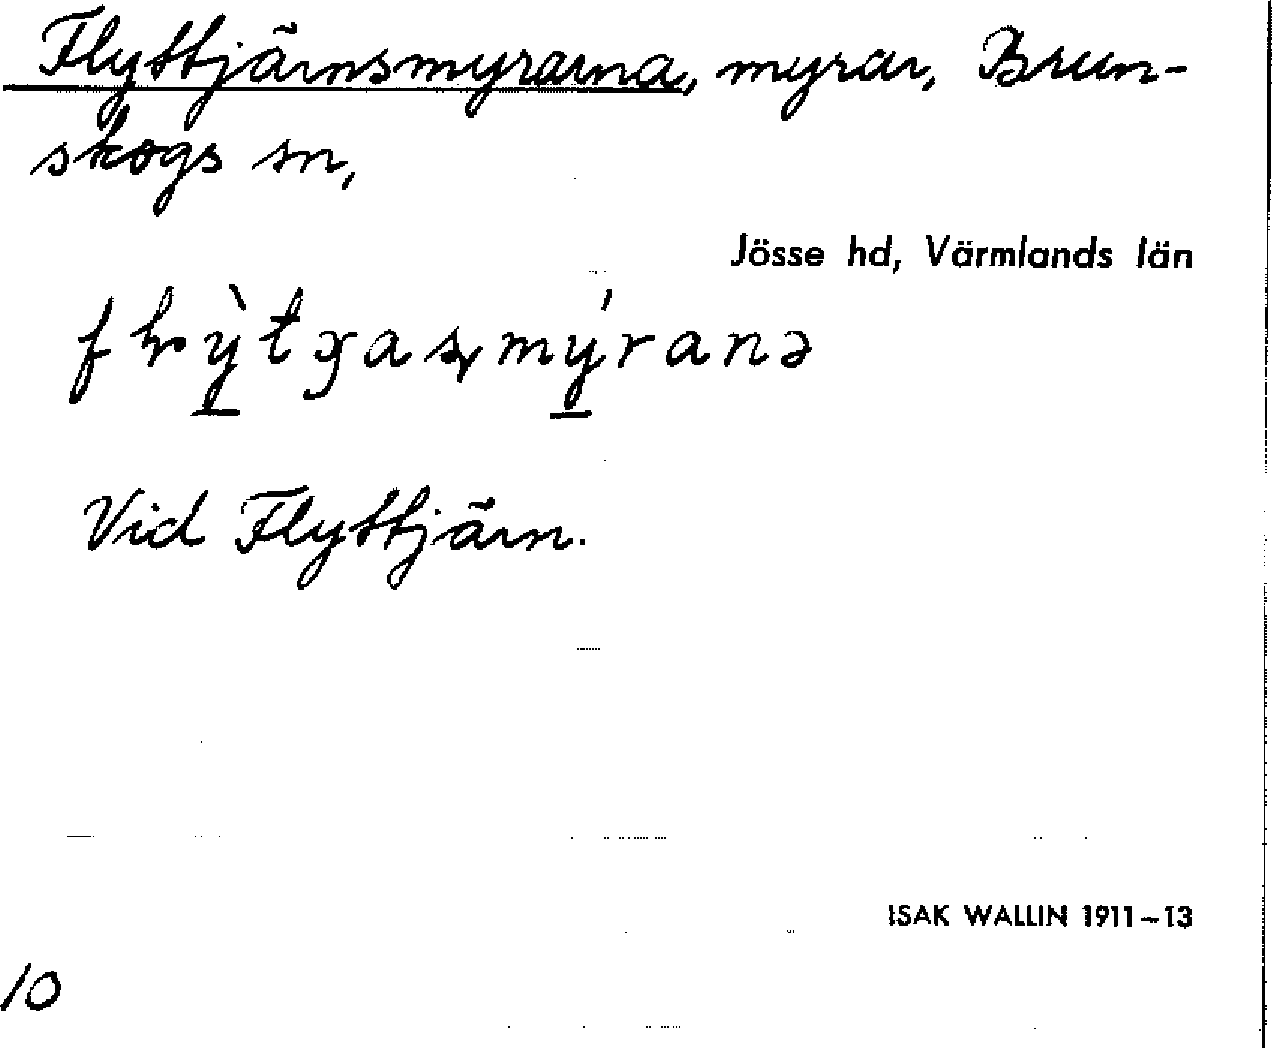 Flyttjärnsmyrarna, myrar, Brun-
skogs sn,
Jösse hd, Värmlands län
Vid Flyttjärn.
ISAK WALLIN 1911–13
10